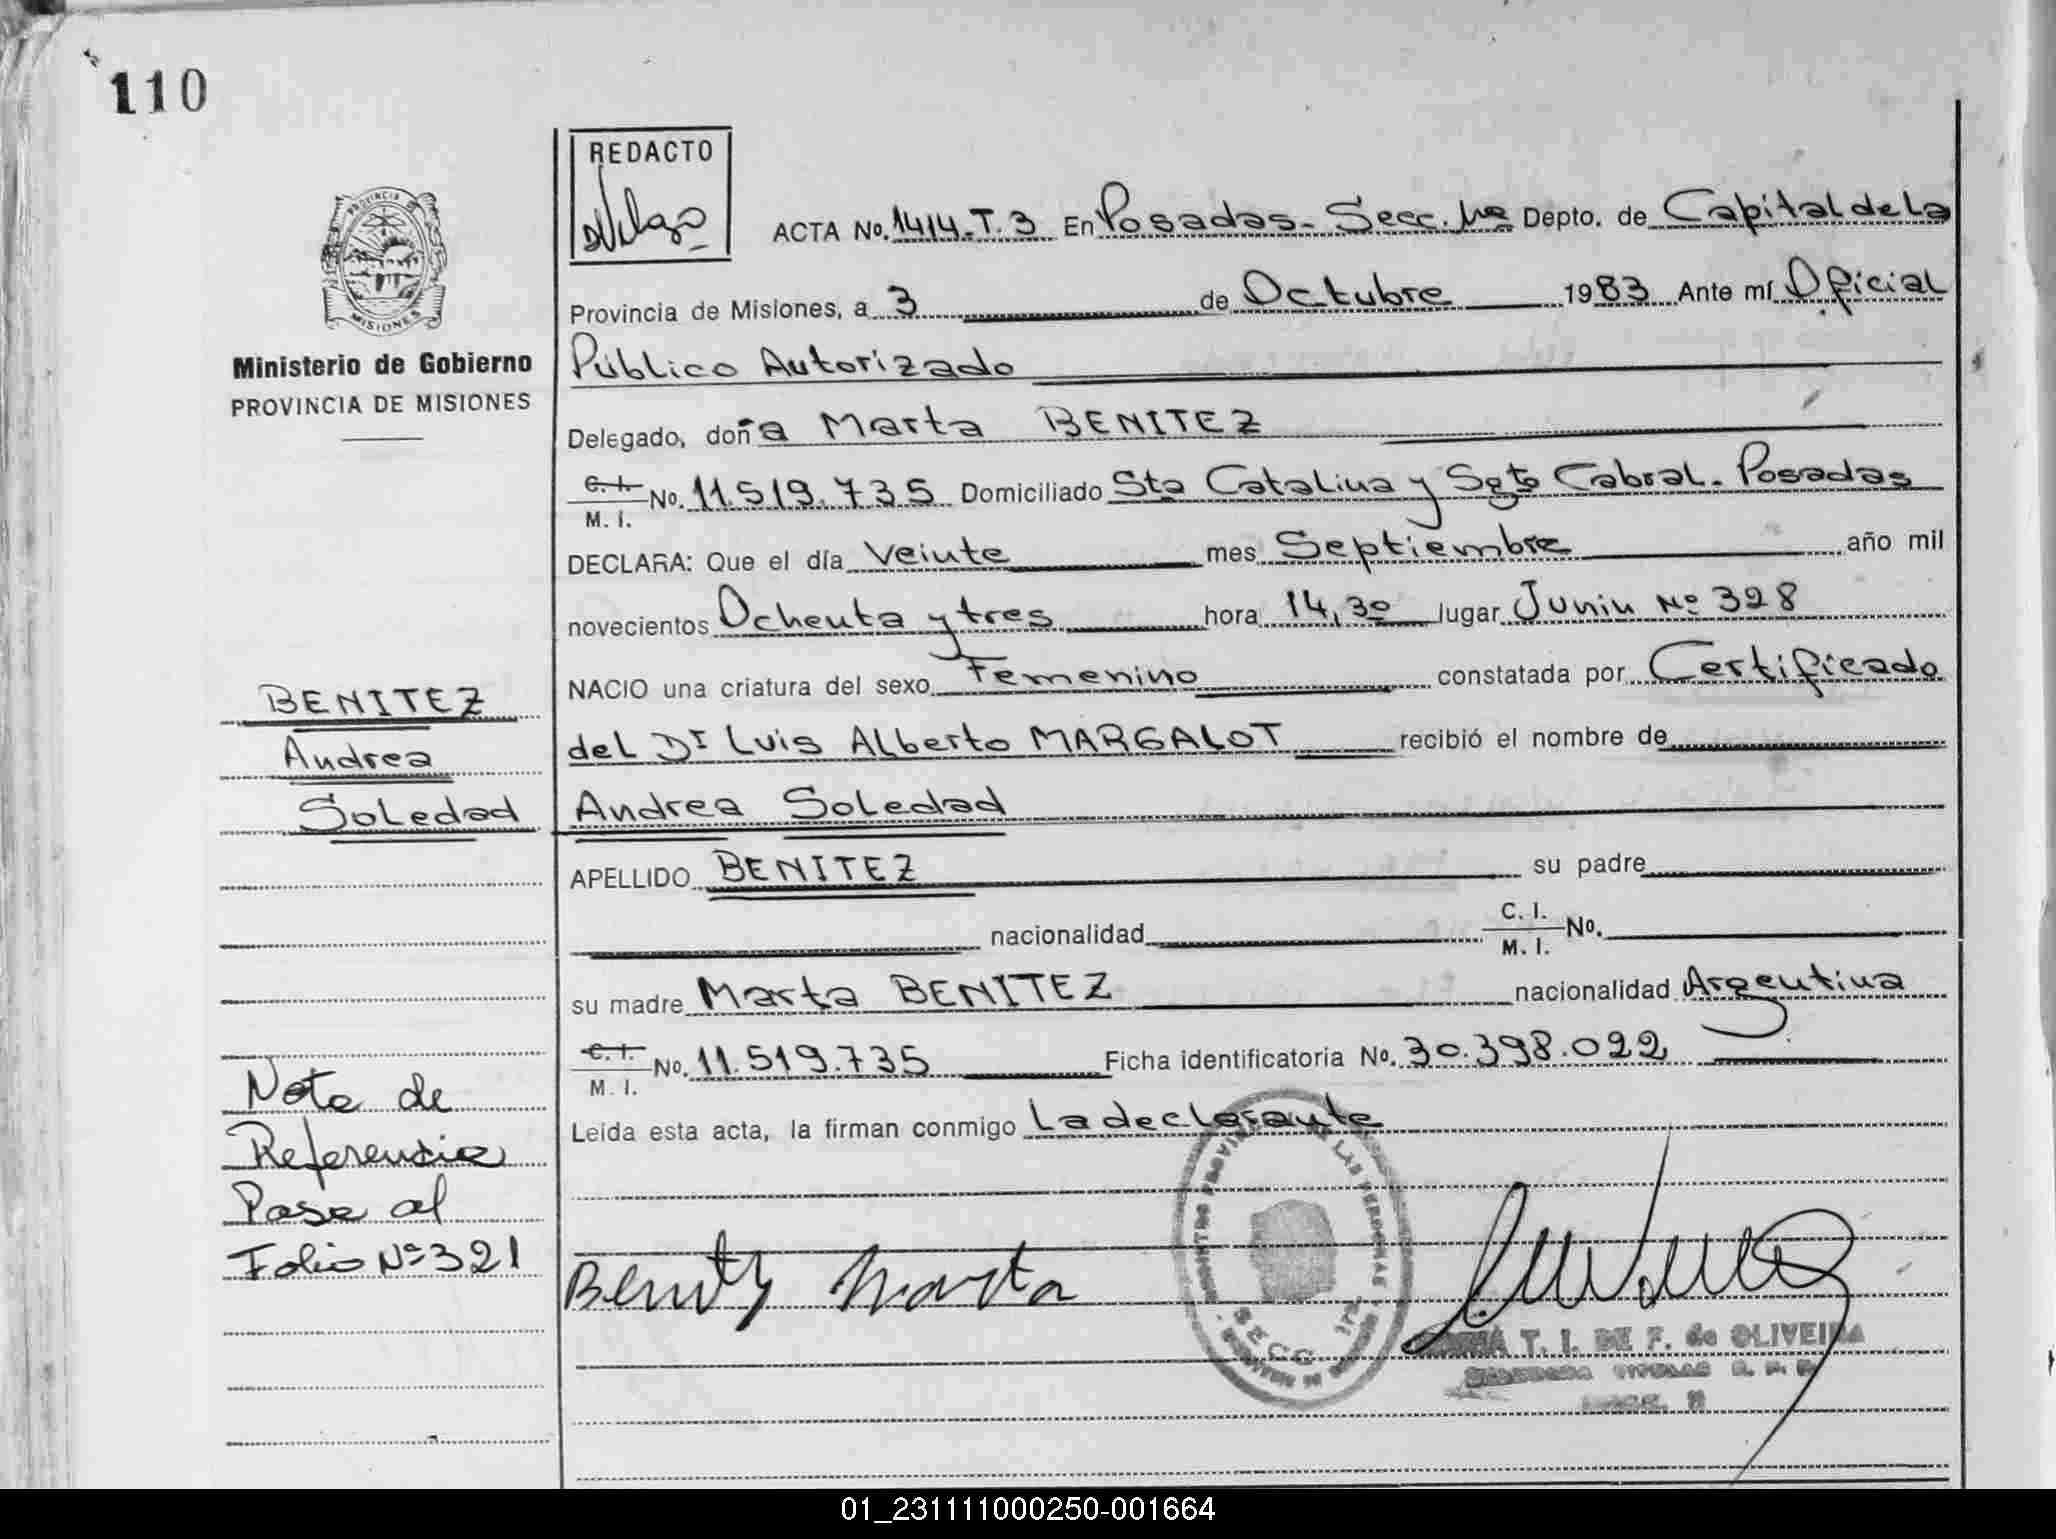 110
REDACTO
PROVINCIA DE
MISIONES
Ministerio de Gobierno
PROVINCIA DE MISIONES
ACTA No. 1414-T.3 En Posadas- Secc. 1ra Depto. de Capital de La
Provincia de Misiones, a 3 de Octubre 1983 Ante mí Oficial
Público Autorizado
Delegado, doña Marta BENITEZ
C. I.
M. I. No. 11.519.735 Domiciliado Sta Catalina y Sgto Cabral. Posadas
DECLARA: Que el día veinte mes Septiembre año mil
novecientos Ochenta y tres hora 14,30 lugar Junin Nº 328
NACIO una criatura del sexo Femenino constatada por Certificado
del Dr Luis Alberto MARGALOT recibió el nombre de
Andrea Soledad
APELLIDO BENITEZ su padre
nacionalidad C. I.
M. I. No.
su madre Marta BENITEZ nacionalidad Argentina
C. I.
M. I. No. 11.519.735 Ficha identificatoria No. 30.398.022
Leida esta acta, la firman conmigo La declarante
BENITEZ
Andrea
Soledad
Nota de
Referencia
Pasa al
Folio Nº 321
Benitez Marta
LAS PERSONAS
SECC 1ra
T. I. DE F. de OLIVEIRA
01_231111000250-001664